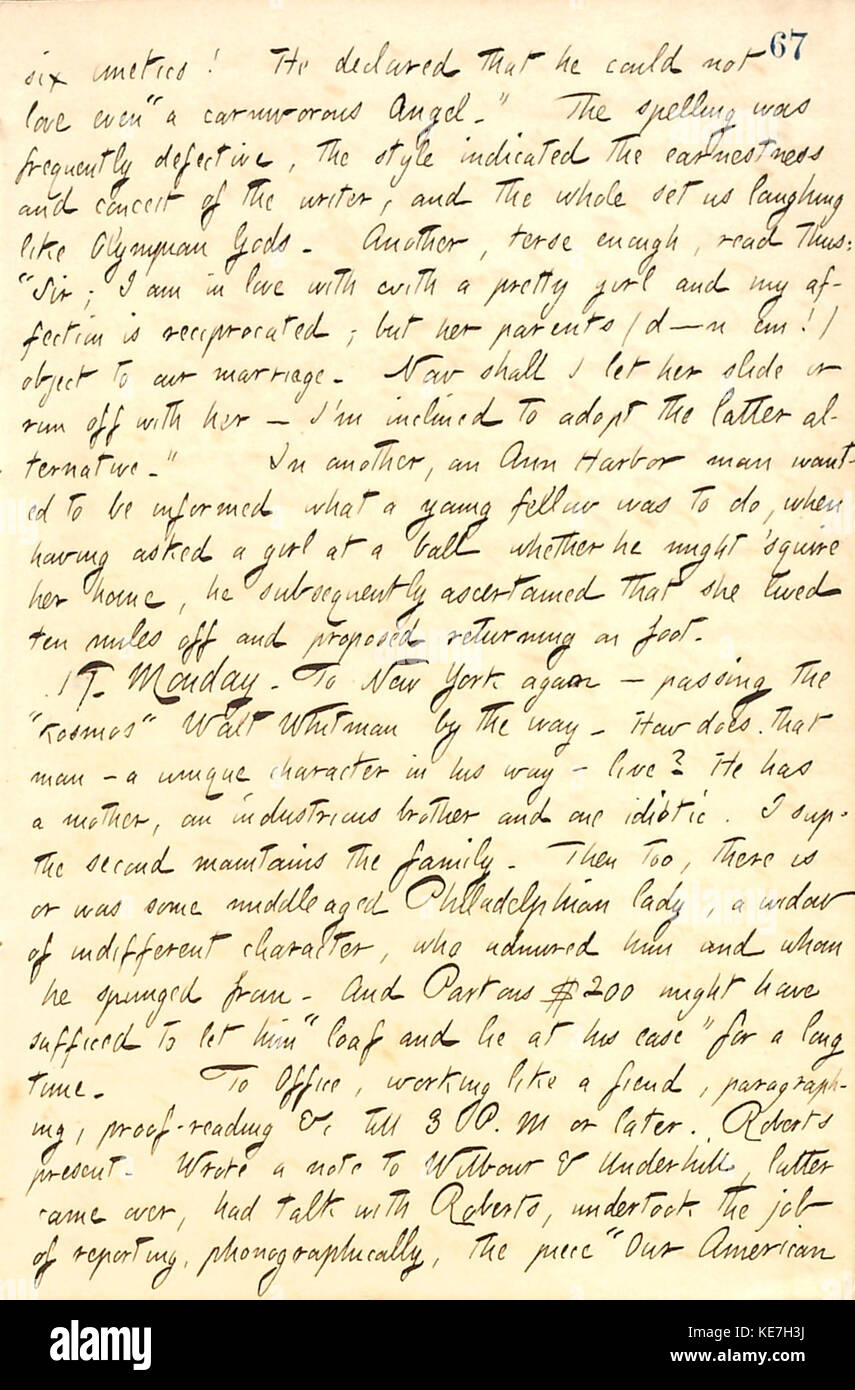 67
six emetics! He declared that he could not
love even "a carnivorous Angel." The spelling was
frequently defective, the style indicated the earnestness
and conceit of the writer, and the whole set us laughing
like Olympian Gods. Another, terse enough, read thus:
"Sir; I am in love with with a pretty girl and my af-
fection is reciprocated; but her parents (d—n em!)
object to our marriage. Now shall I let her slide or
run off with her — I'm inclined to adopt the latter al-
ternative." In another, an Ann Harbor man want-
ed to be informed what a young fellow was to do, when
having asked a girl at a ball whether he might 'squire
her home, he subsequently ascertained that she lived
ten miles off and proposed returning on foot.
17. Monday. To New York again — passing the
"Kosmos" Walt Whitman by the way. How does that
man – a unique character in his way – live? He has
a mother, an industrious brother and one idiotic. I sup.
the second maintains the family. Then too, there is
or was some middleaged Philadelphian lady, a widow
of indifferent character, who admired him and whom
he spunged from. And Partons $200 might have
sufficed to let him "loaf and lie at his ease" for a long
time. To Office, working like a fiend, paragraph-
ing, proof-reading &c till 3 P.M or later. Roberts
present. Wrote a note to Wilbour & Underhill, latter
came over, had talk with Roberts, undertook the job
of reporting, phonographically, the piece "Our American
alamy
Image ID: KE7H3J
www.alamy.com